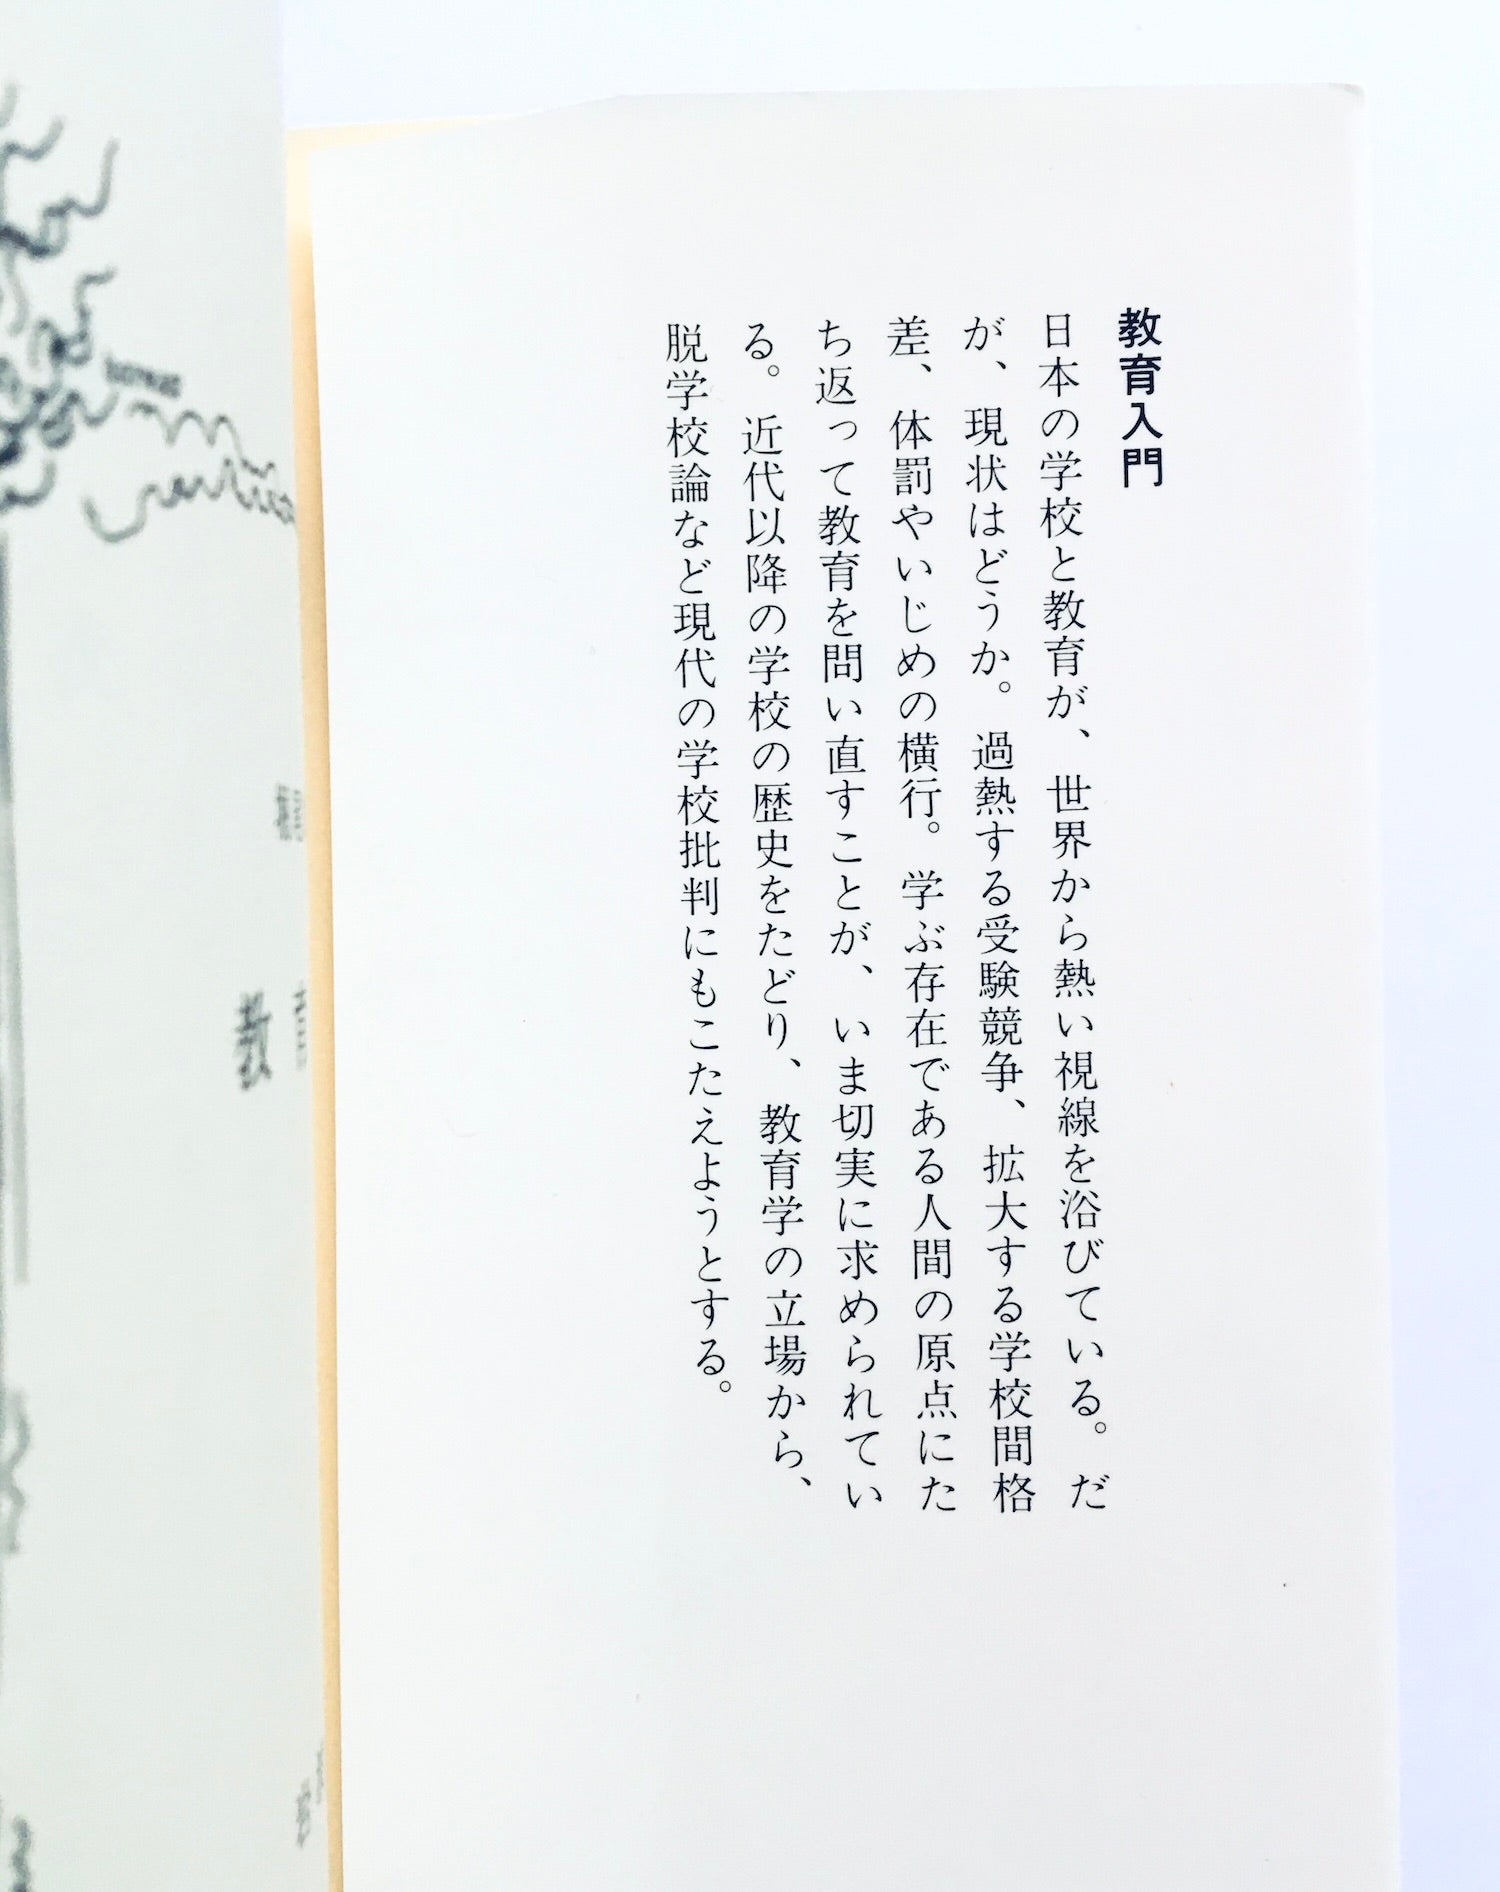 教育入門
日本の学校と教育が、世界から熱い視線を浴びている。だ
が、現状はどうか。過熱する受験競争、拡大する学校間格
差、体罰やいじめの横行。学ぶ存在である人間の原点にた
ち返って教育を問い直すことが、いま切実に求められてい
る。近代以降の学校の歴史をたどり、教育学の立場から、
脱学校論など現代の学校批判にもこたえようとする。
教育